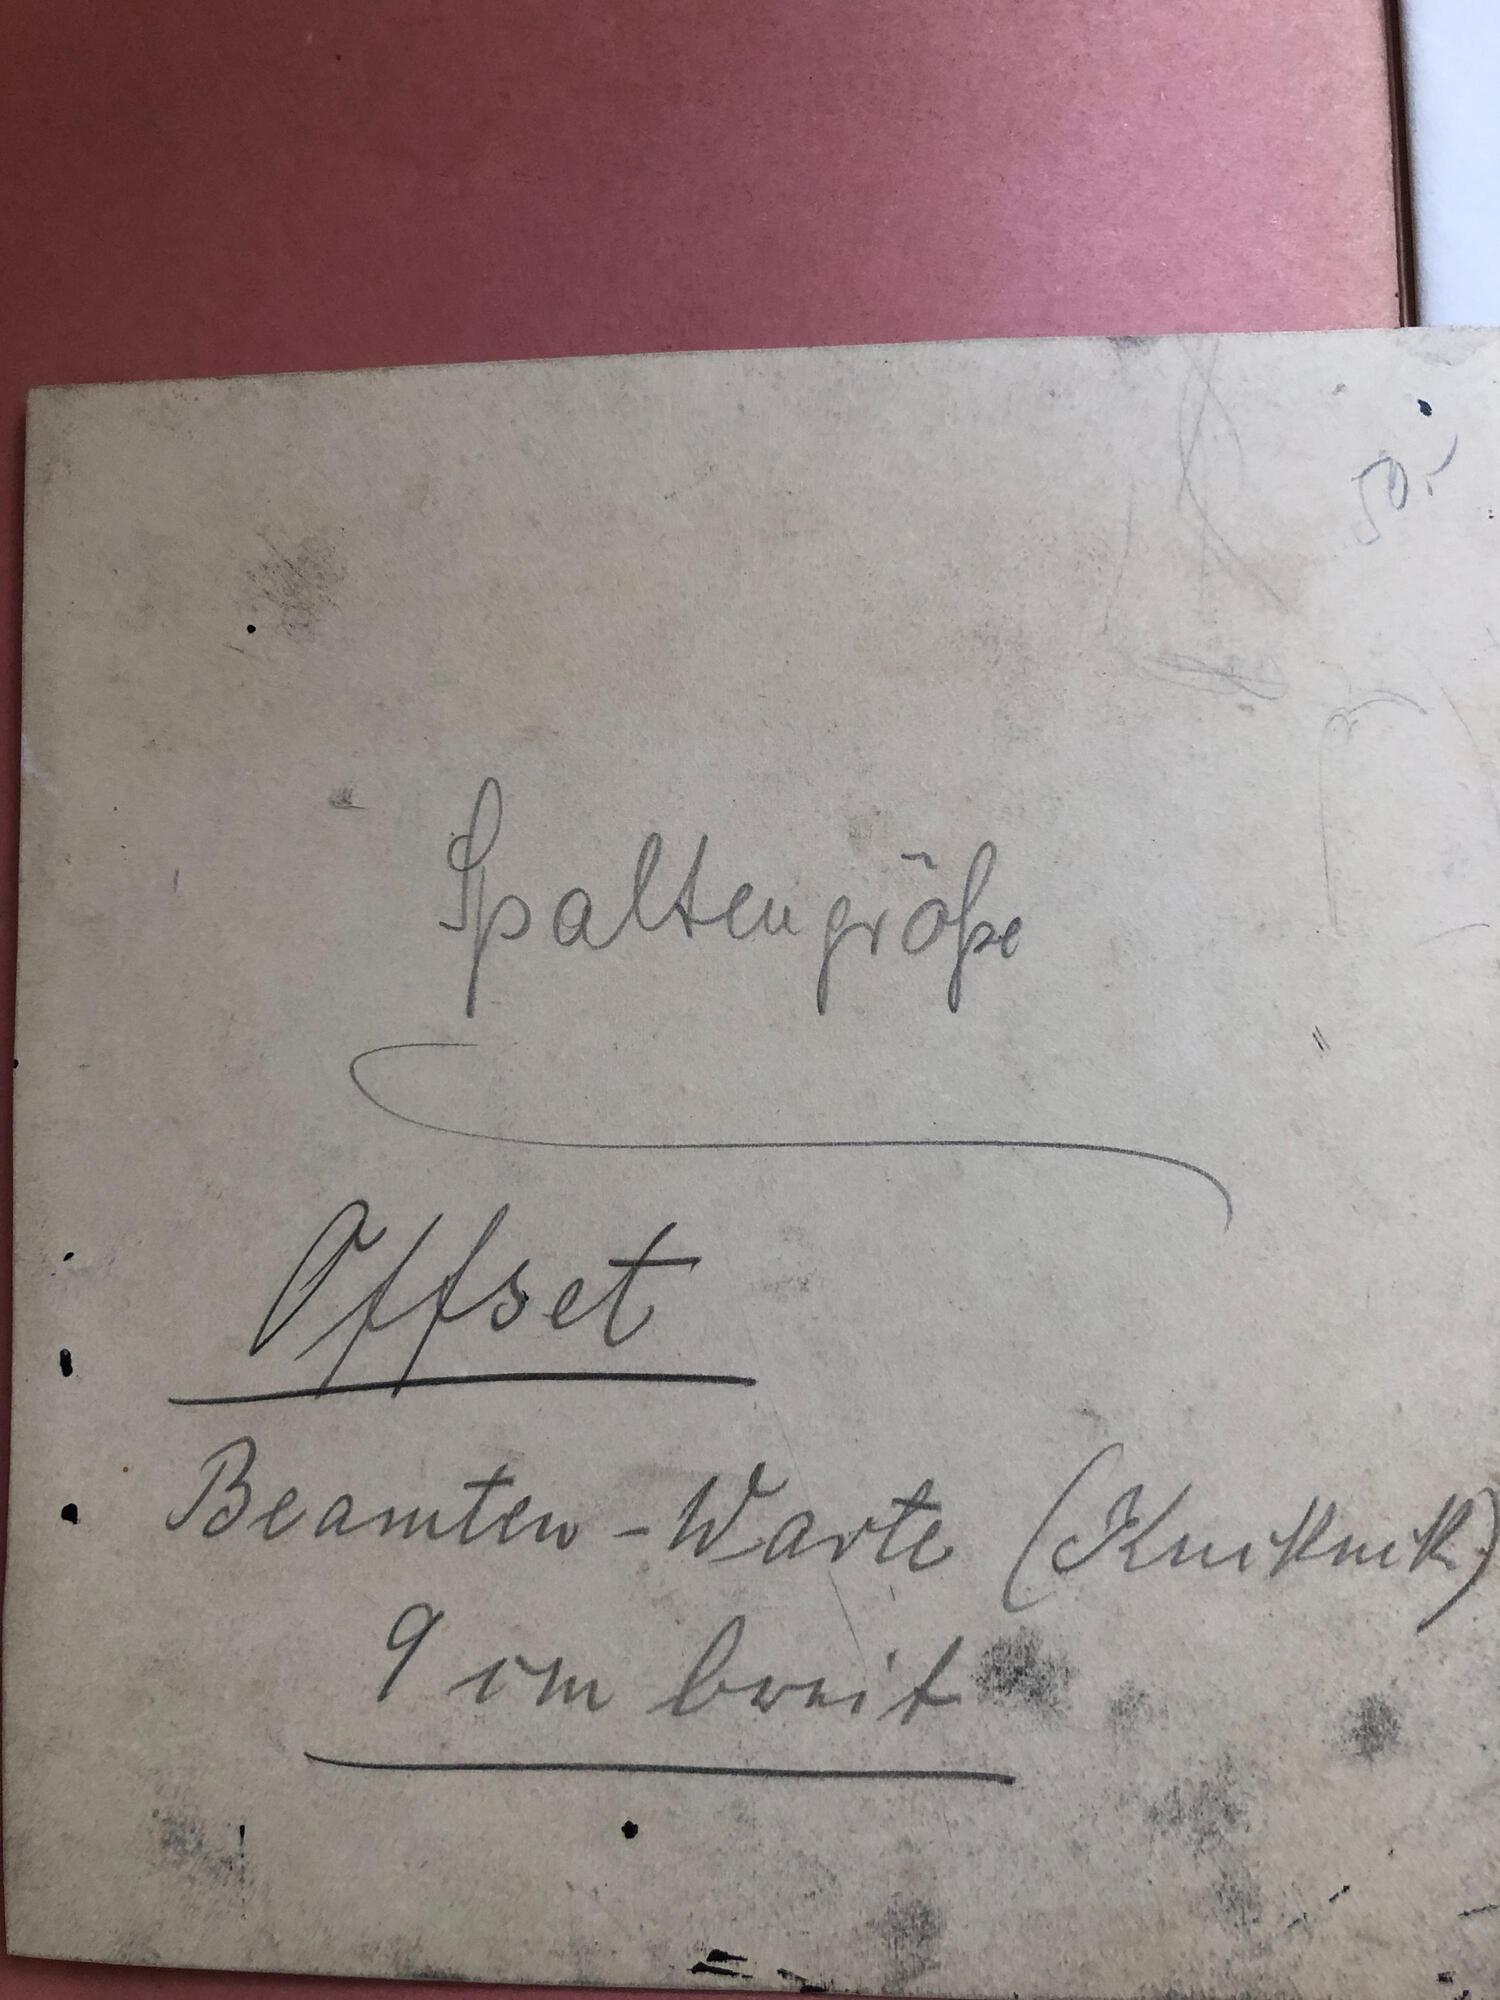 50.-
Spaltengröße
Offset
Beamten-Warte (Kniknik)
9 cm breit